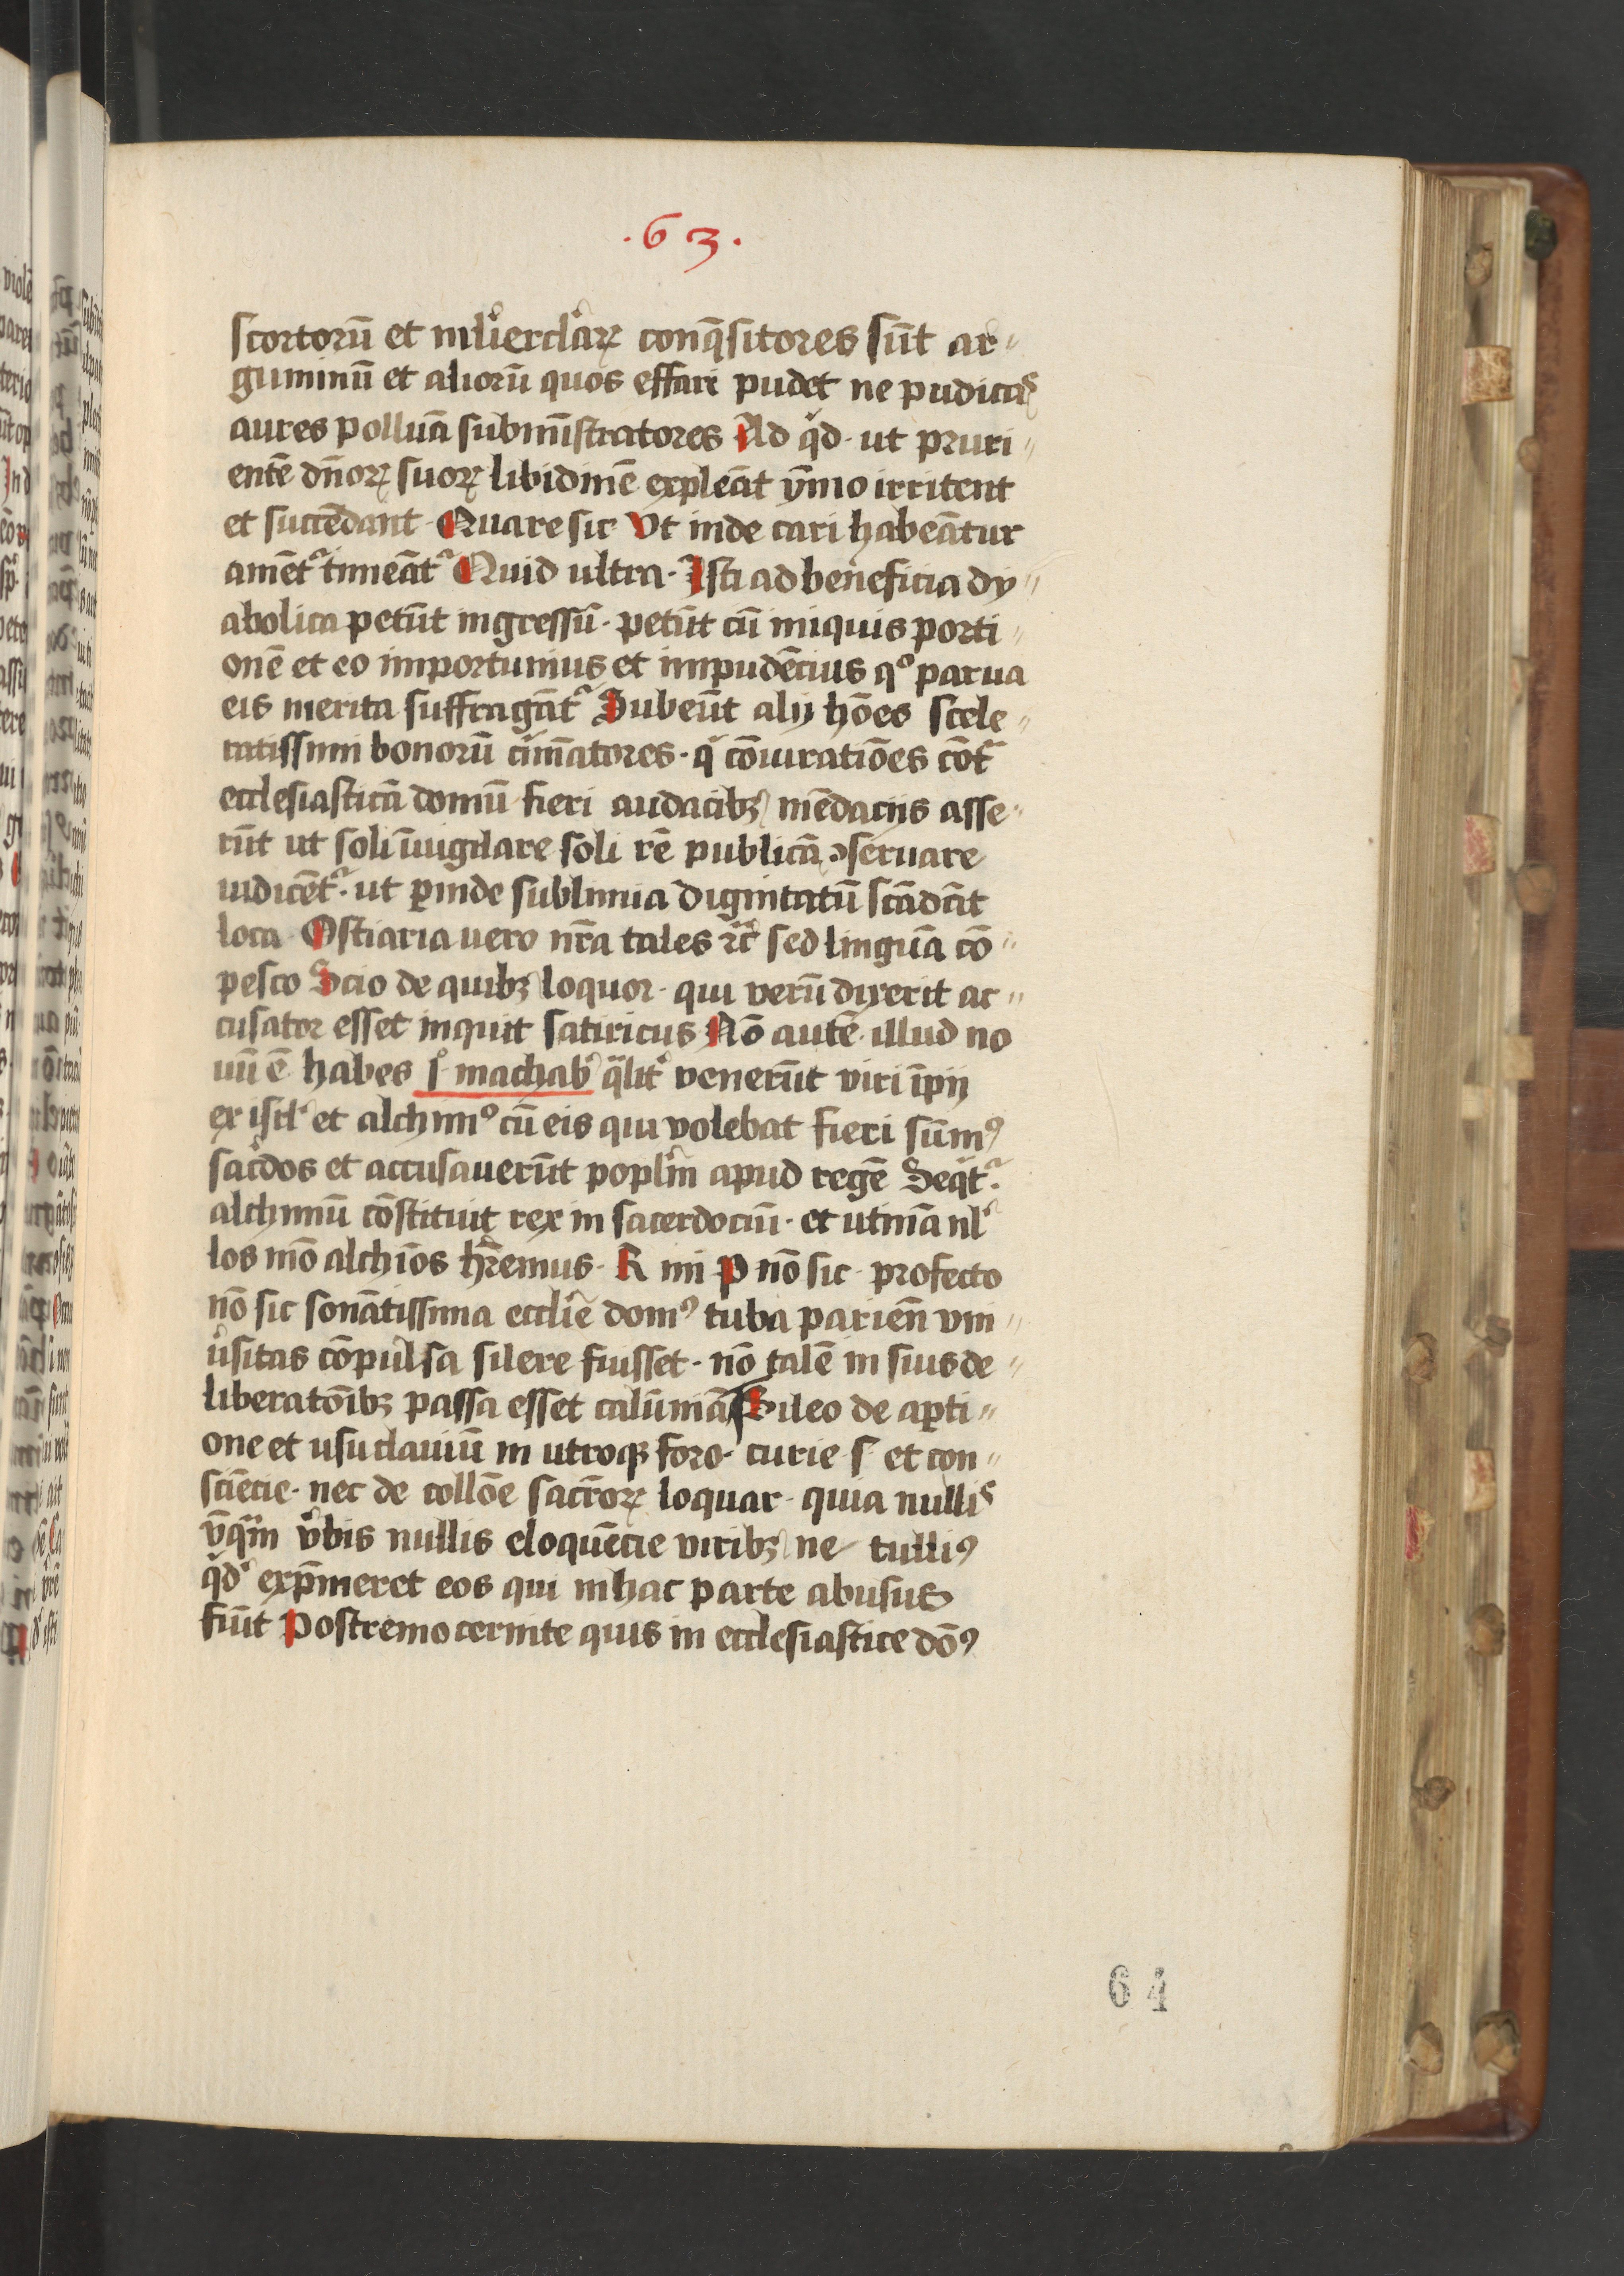 .63.
scortorū et mulierclaꝝ conq̄sitores sūt ar〃
guminū et aliorū quos effari pudet ne pudicas
aures polluā submīstratores Ad qͥd· ut pruri〃
entē dn̄oꝝ suoꝝ libidinē expleāt ymo irritent
et succēdant· Quare sic Vt inde cari habeātur
amēt᷑ timeāt᷑ Quid ultra· Isti ad beneficia dy〃
abolica petūt ingressū· petūt cū iniquis porti〃
onē et eo importunius et impudēcius qͦ parua
eis merita suffragāt᷑ Iubeūt alij hōes scele〃
ratissimi bonorū cīmatores· qͥ cōiurationes cōtͣ
ecclesiasticā domū fieri audacibꝫ mēdacijs asse〃
rūt ut soli īuigilare soli rē publicā ꝯseruare
iudicēt᷑· ut ꝑinde sublimia dignitatū scādāt
loca· Ostiaria uero nr̄a tales rc̄ sed linguā cō〃
pesco Scio de quibꝫ loquor· qui verū dixerit ac〃
cusator esset inquit satiricus Nō autē illud no
uū ē habes ſͦ machab qͣlit᷑ venerūt viri īpij
ex isrl᷑ et alchimꝰ cū eis qui volebat fieri sūmꝰ
sac͛dos et accusauerūt poplm̄ apud regē Seqͥt᷑·
alchimū cōstituit rex in sacerdociū· et utinā nl᷑
los mō alchīos hr̄emus· R mi P nō sic· profecto
nō sic sonātissima ecclīe domꝰ tuba pariēn vni〃
u͛sitas cōpulsa silere fuisset· nō talē in suis de〃
liberatōibꝫ passa esset calūniā Sileo de aꝑti〃
one et usu clauiū in utroqꝫ foro· curie s· et con〃
sciēcie· nec de collōe sac̄roꝝ loquar· quia nullis
vn̄qͣm v͛bis nullis eloquēcie viribꝫ ne tulliꝰ
qͥd᷑ exp̄meret eos qui in hac parte abusus
fiūt Postremo cernite quis in ecclesiastice dōꝰ
64